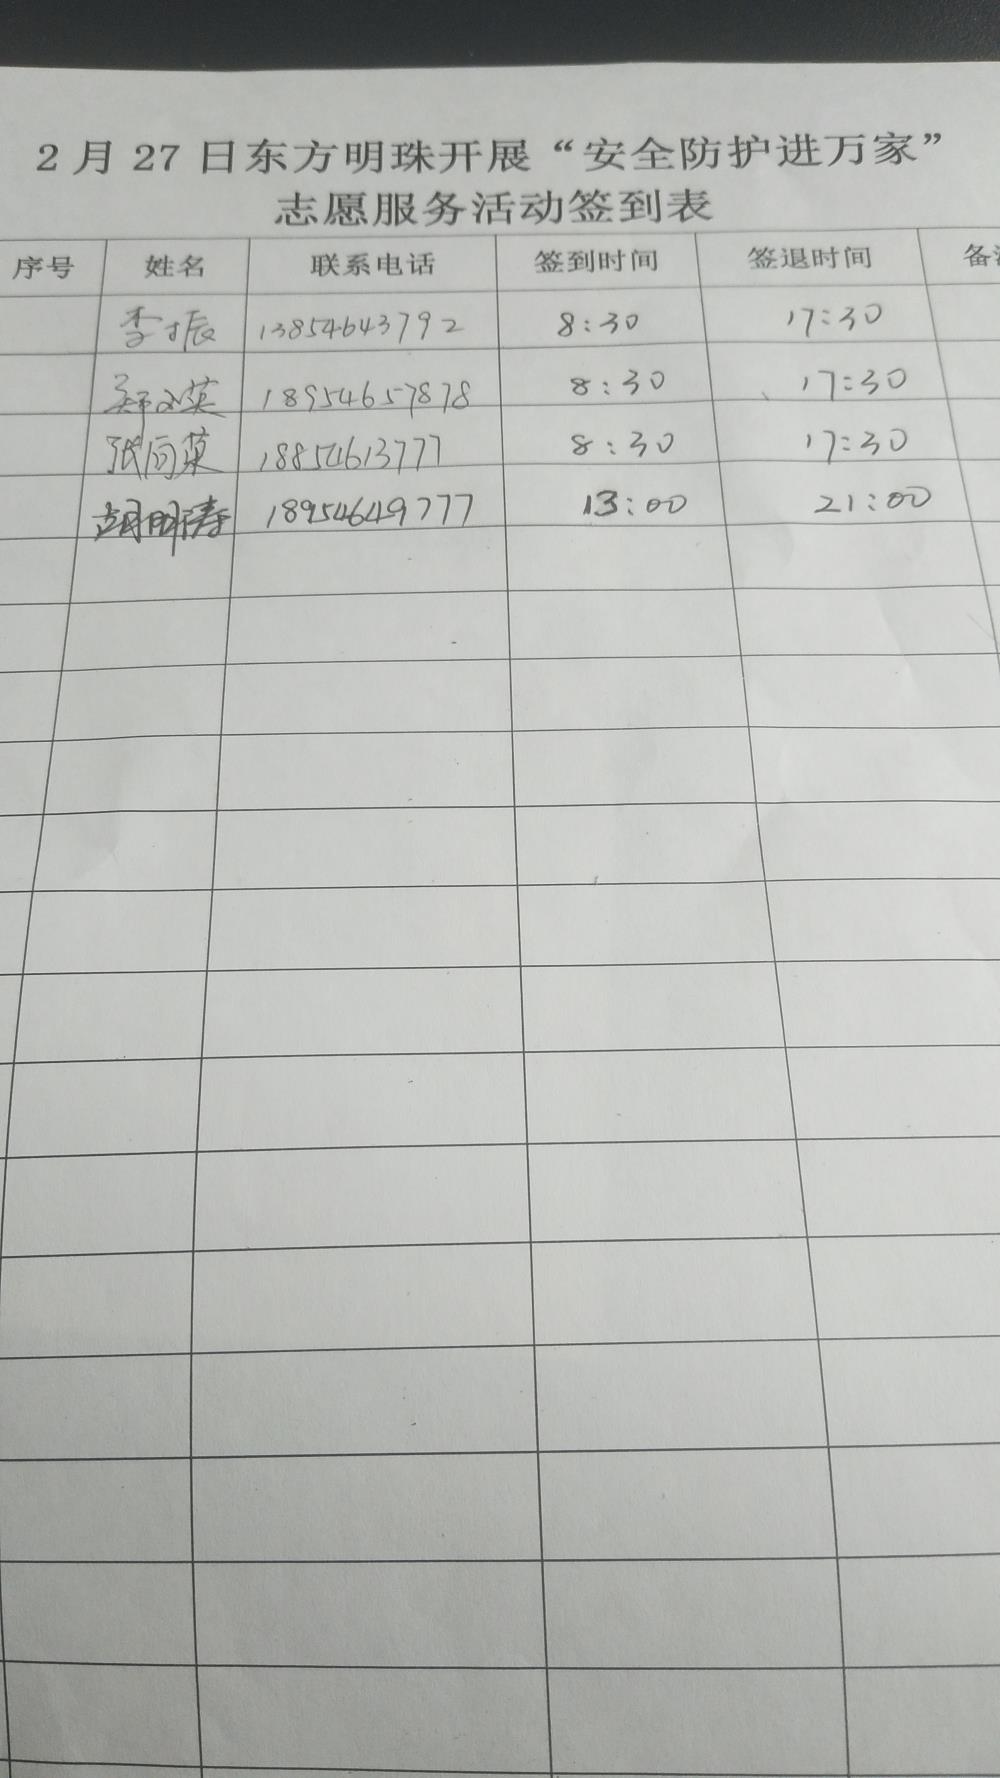 2月27日东方明珠开展“安全防护进万家”
志愿服务活动签到表
序号 姓名 联系电话 签到时间 签退时间 备注
李振 13854643792 8:30 17:30
郑文英 18954657878 8:30 17:30
张向英 18854613777 8:30 17:30
胡明涛 18954649777 13:00 21:00